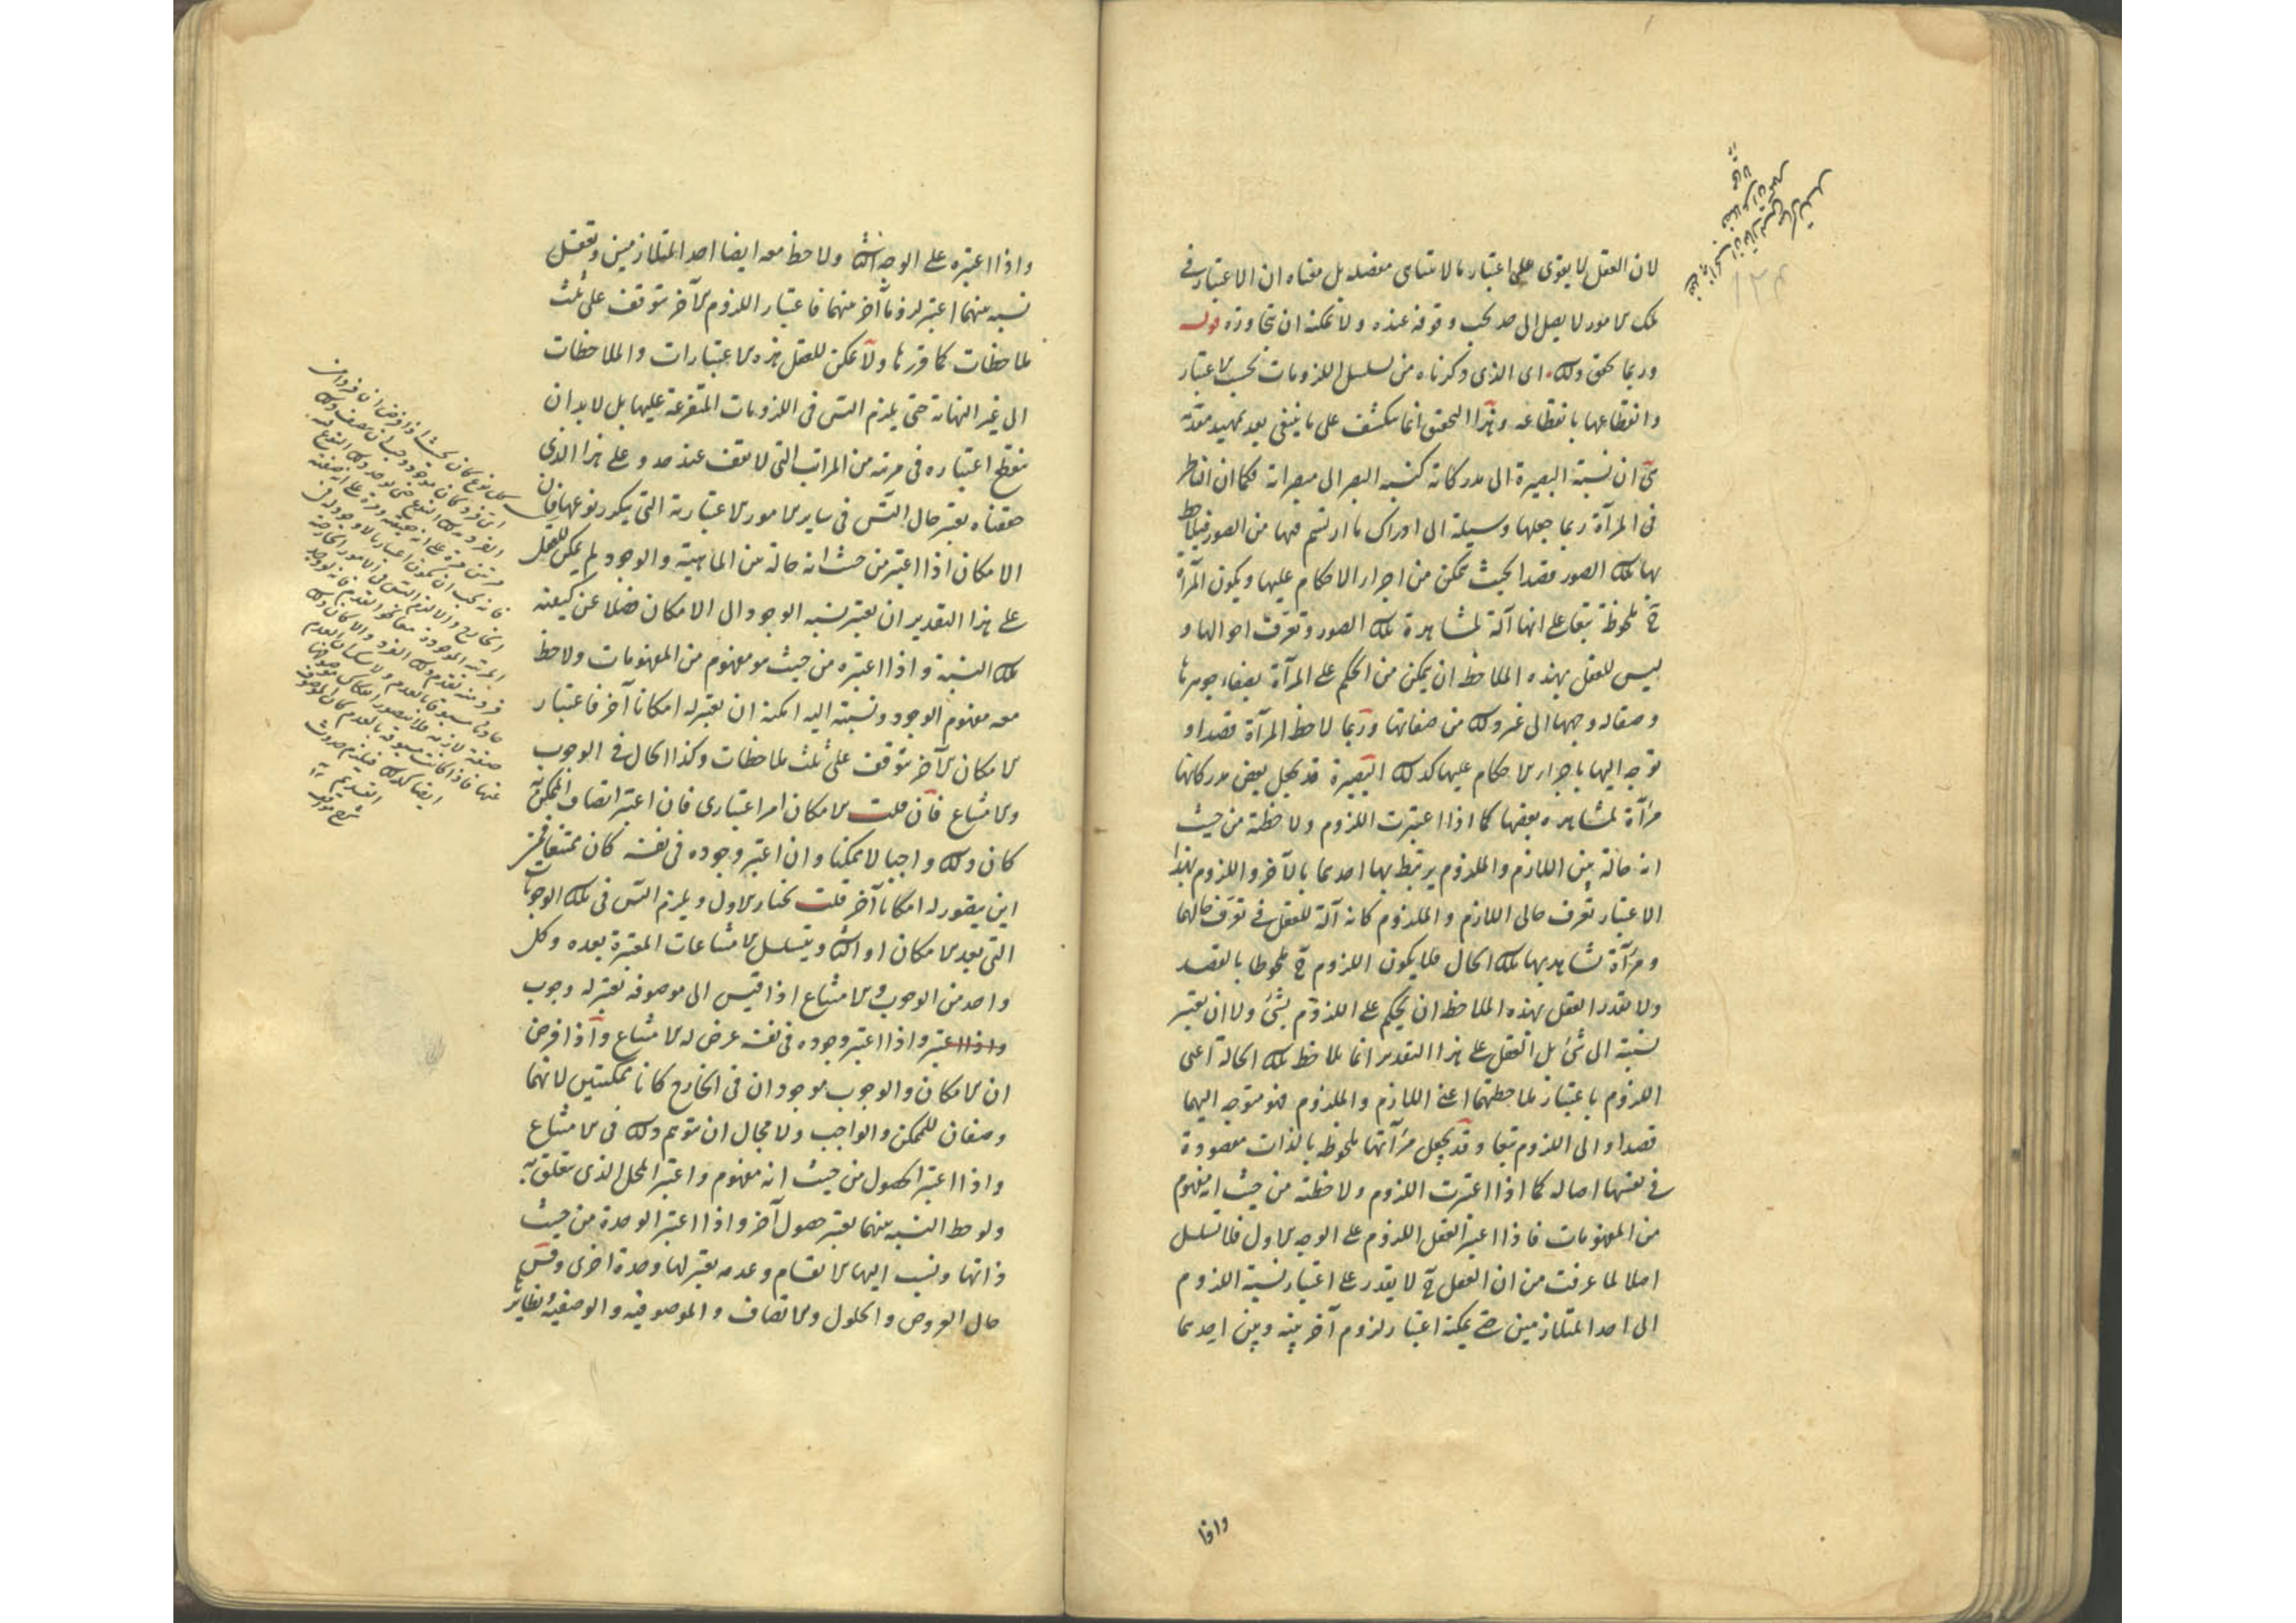 لان العقل لا يقوى على اعتبار ما لا يتناهى مفصله بل معناه ان الاعتبار في
تلك الامور لا يصل الى حد يجب وقوفه عنده ولا يمكنه ان يتجاوزه قوله
وربما يحقق ذلك اى الذى ذكرناه من تسلسل اللزومات بحسب الاعتبار
وانقطاعها بانقطاعه وهذا التحقيق انما ينكشف على ما ينبغى بعد تمهيد مقدمة
هى ان نسبة البصيرة الى مدركاته كنسبه البصر الى مبصراته فكما ان الناظر
فى المرآة ربما جعلها وسيلة الى ادراك ما ارتسم فيها من الصور فيلاحظ
بها تلك الصور قصدا بحيث يتمكن من اجراء الاحكام عليها ويكون المرآة
ح ملحوظة تبعا على انها آلة لمشاهدة تلك الصور وتعرف احوالها و
ليس للعقل بهذه الملاحظه ان يتمكن من الحكم على المرآة بصفاء جوهرها
وصقاله وجهها الى غير ذلك من صفاتها وربما لاحظ المرآة قصدا و
توجه اليها باجراء الاحكام عليها كذلك البصيرة قد يجعل بعض مدركاتها
مرآة لمشاهده بعضها كما اذا اعتبرت اللزوم ولاحظته من حيث
انه حالة بين اللازم والملزوم يرتبط بها احدهما بالآخر واللزوم بهذا
الاعتبار تعرف حالى اللازم والملزوم كانه آلة للعقل في تعرف حالهما
ومرآة تشاهد بها تلك الحال فلا يكون اللزوم ح ملحوظا بالقصد
ولا يقدر العقل بهذه الملاحظه ان يحكم على اللزوم بشئ ولا ان يعتبر
نسبته الى شئ بل العقل على هذا التقدير انما يلاحظ تلك الحالة اعنى
اللزوم باعتبار ملاحظتهما اعنى اللازم والملزوم فهو متوجه اليهما
قصدا والى اللزوم تبعا وقد يجعل مرآتها ملحوظه بالذات مقصودة
في نفسها اصاله كما اذا اعتبرت اللزوم ولاحظته من حيث انه مفهوم
من المفهومات فاذا اعتبر العقل اللزوم على الوجه الاول فلا تسلسل
اصلا لما عرفت من ان العقل ح لا يقدر على اعتبار نسبة اللزوم
الى احد المتلازمين حتى يمكنه اعتبار لزوم آخر بينه وبين احدهما
واذا
واذا اعتبره على الوجه الثانى ولاحظ معه ايضا احد المتلازمين وتعقل
نسبه بينهما اعتبر لزوما آخر منهما فاعتبار اللزوم الآخر يتوقف على ثلث
ملاحظات كما قررنا ولا يمكن للعقل هذه الاعتبارات والملاحظات
الى غير النهاية حتى يلزم التس فى اللزومات المتفرعة عليها بل لا بد ان
ينقطع اعتباره فى مرتبه من المراتب التى لا يقف عند حد وعلى هذا الذى
حققناه يعتبر حال التس فى ساير الامور الاعتبارية التى يتكرر نوعها فان
الامكان اذا اعتبر من حيث انه حالة بين الماهية والوجود لم يمكن للعقل
على هذا التقدير ان يعتبر نسبه الوجود الى الامكان فضلا عن كيفية
تلك النسبة واذا اعتبره من حيث هو مفهوم من المفهومات ولاحظ
معه مفهوم الوجود ونسبته اليه امكنه ان يعتبر له امكانا آخر فاعتبار
الامكان الآخر يتوقف على ثلث ملاحظات وكذا الحال في الوجوب
والامتناع فان قلت الامكان امر اعتبارى فان اعتبر اتصاف الممكن به
كان ذلك واجبا لا ممكنا وان اعتبر وجوده فى نفسه كان ممتنعا فمن
اين يتصور له امكانا آخر قلت نختار الاول ويلزم التس فى تلك الوجوبات
التى بعد الامكان او الثانى ويتسلسل الامتناعات المعتبرة بعده وكل
واحد من الوجوب والامتناع اذا قيس الى موصوفه يعتبر له وجوب
واذا اعتبر واذا اعتبر وجوده فى نفسه عرض له الامتناع واذا فرض
ان الامكان والوجوب موجودان فى الخارج كانا ممكنين لانهما
وصفان للممكن والواجب ولا مجال ان يتوهم ذلك فى الامتناع
واذا اعتبر الحصول من حيث انه مفهوم واعتبر المحل الذى يتعلق به
ولوحظ النسبه بينهما يعتبر حصول آخر واذا اعتبر الوحدة من حيث
ذاتها ونسب اليها الانقسام وعدمه يعتبر لها وحدة اخرى وقس
حال العروض والحلول والاتصاف والموصوفيه والوصفية ونظايرها
كل نوع كان بحيث اذا فرض ان فردا من